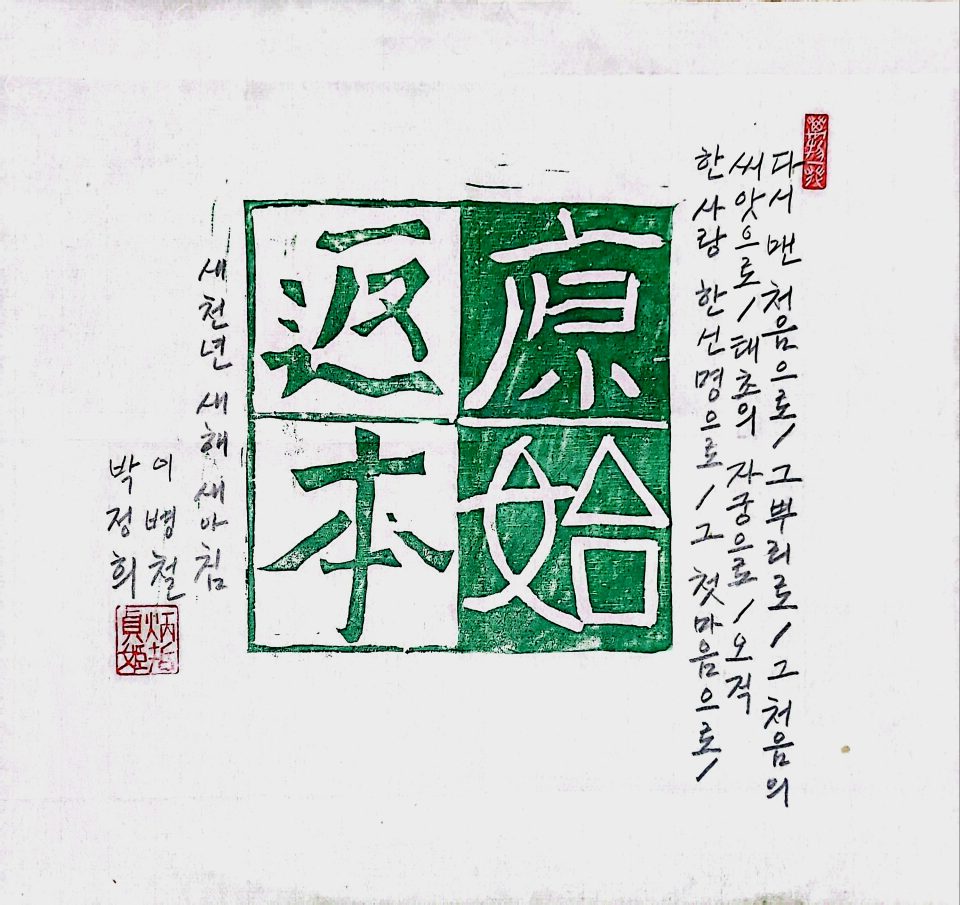 다시 맨 처음으로/ 그 뿌리로/ 그 처음의
씨앗으로/ 태초의 자궁으로/ 오직
한 사랑 한 선명으로/ 그 첫 마음으로/
原始
返本
새천년 새해 새아침
이병철
박정희
炳哲
貞姬